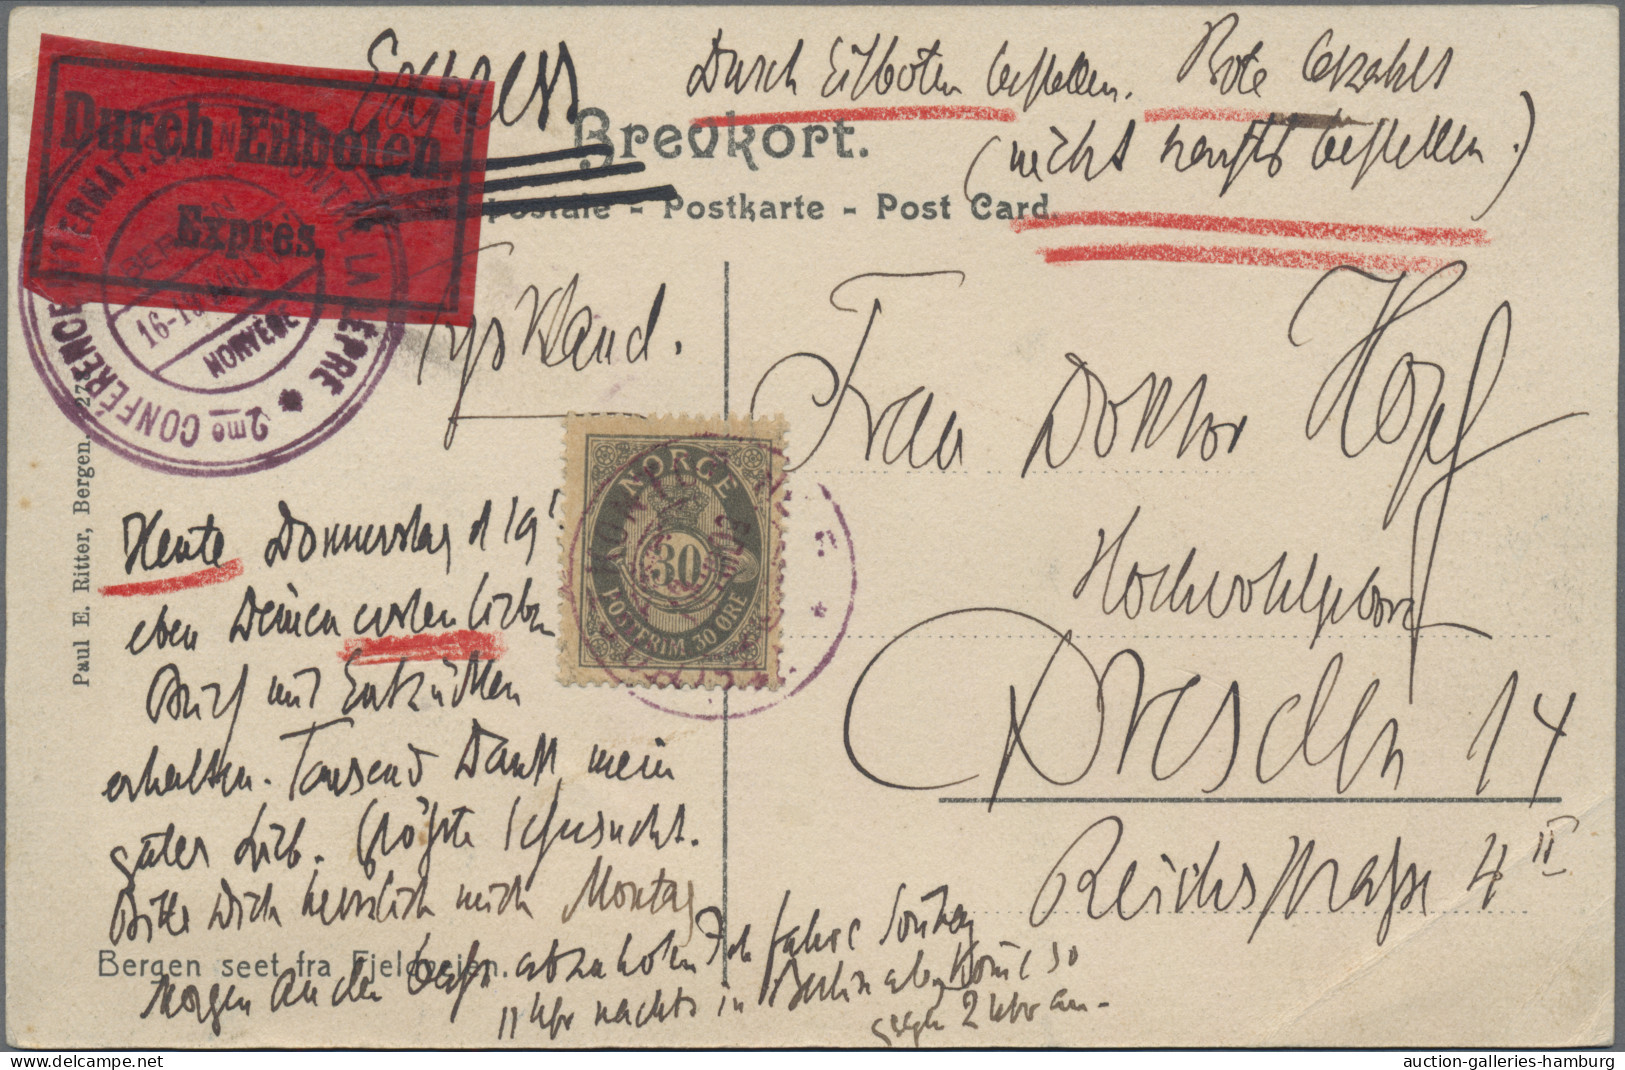 Express
Durch Eilboten bestellen. Bote bezahlt
(nicht nachts bestellen.)
Durch Eilboten.
Expres.
Brevkort.
postale - Postkarte - Post Card.
INTERNAT. LA LÈPRE * 2me CONFÉRENCE
BERGEN
16-18
NORVÈGE
Tyskland.
Frau Doktor Hopf
Hochwohlgeboren
Dresden 14
Reichsstraße 4 II
NORGE
30
POSTFRIM 30 ØRE
Heute Donnerstag d 19'
eben Deinen ersten lieben
Brief mit Entzücken
erhalten. Tausend Dank, mein
gutes Lieb. Größte Sehnsucht.
Bitte Dich herzlich mich Montag
Morgen an der Bahn abzuholen Ich fahre Sonntag
11 Uhr nachts in Berlin ab, komme so
gegen 2 Uhr an.
Bergen seet fra Fjeldveien.
Paul E. Ritter, Bergen. 27
auction-galleries-hamburg